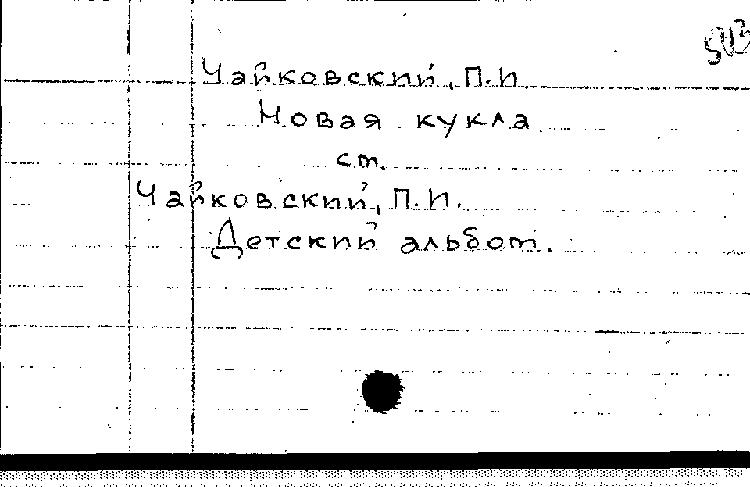 Чайковский, П.И
Новая кукла
ст.
Чайковский, П.И.
Детский альбом.